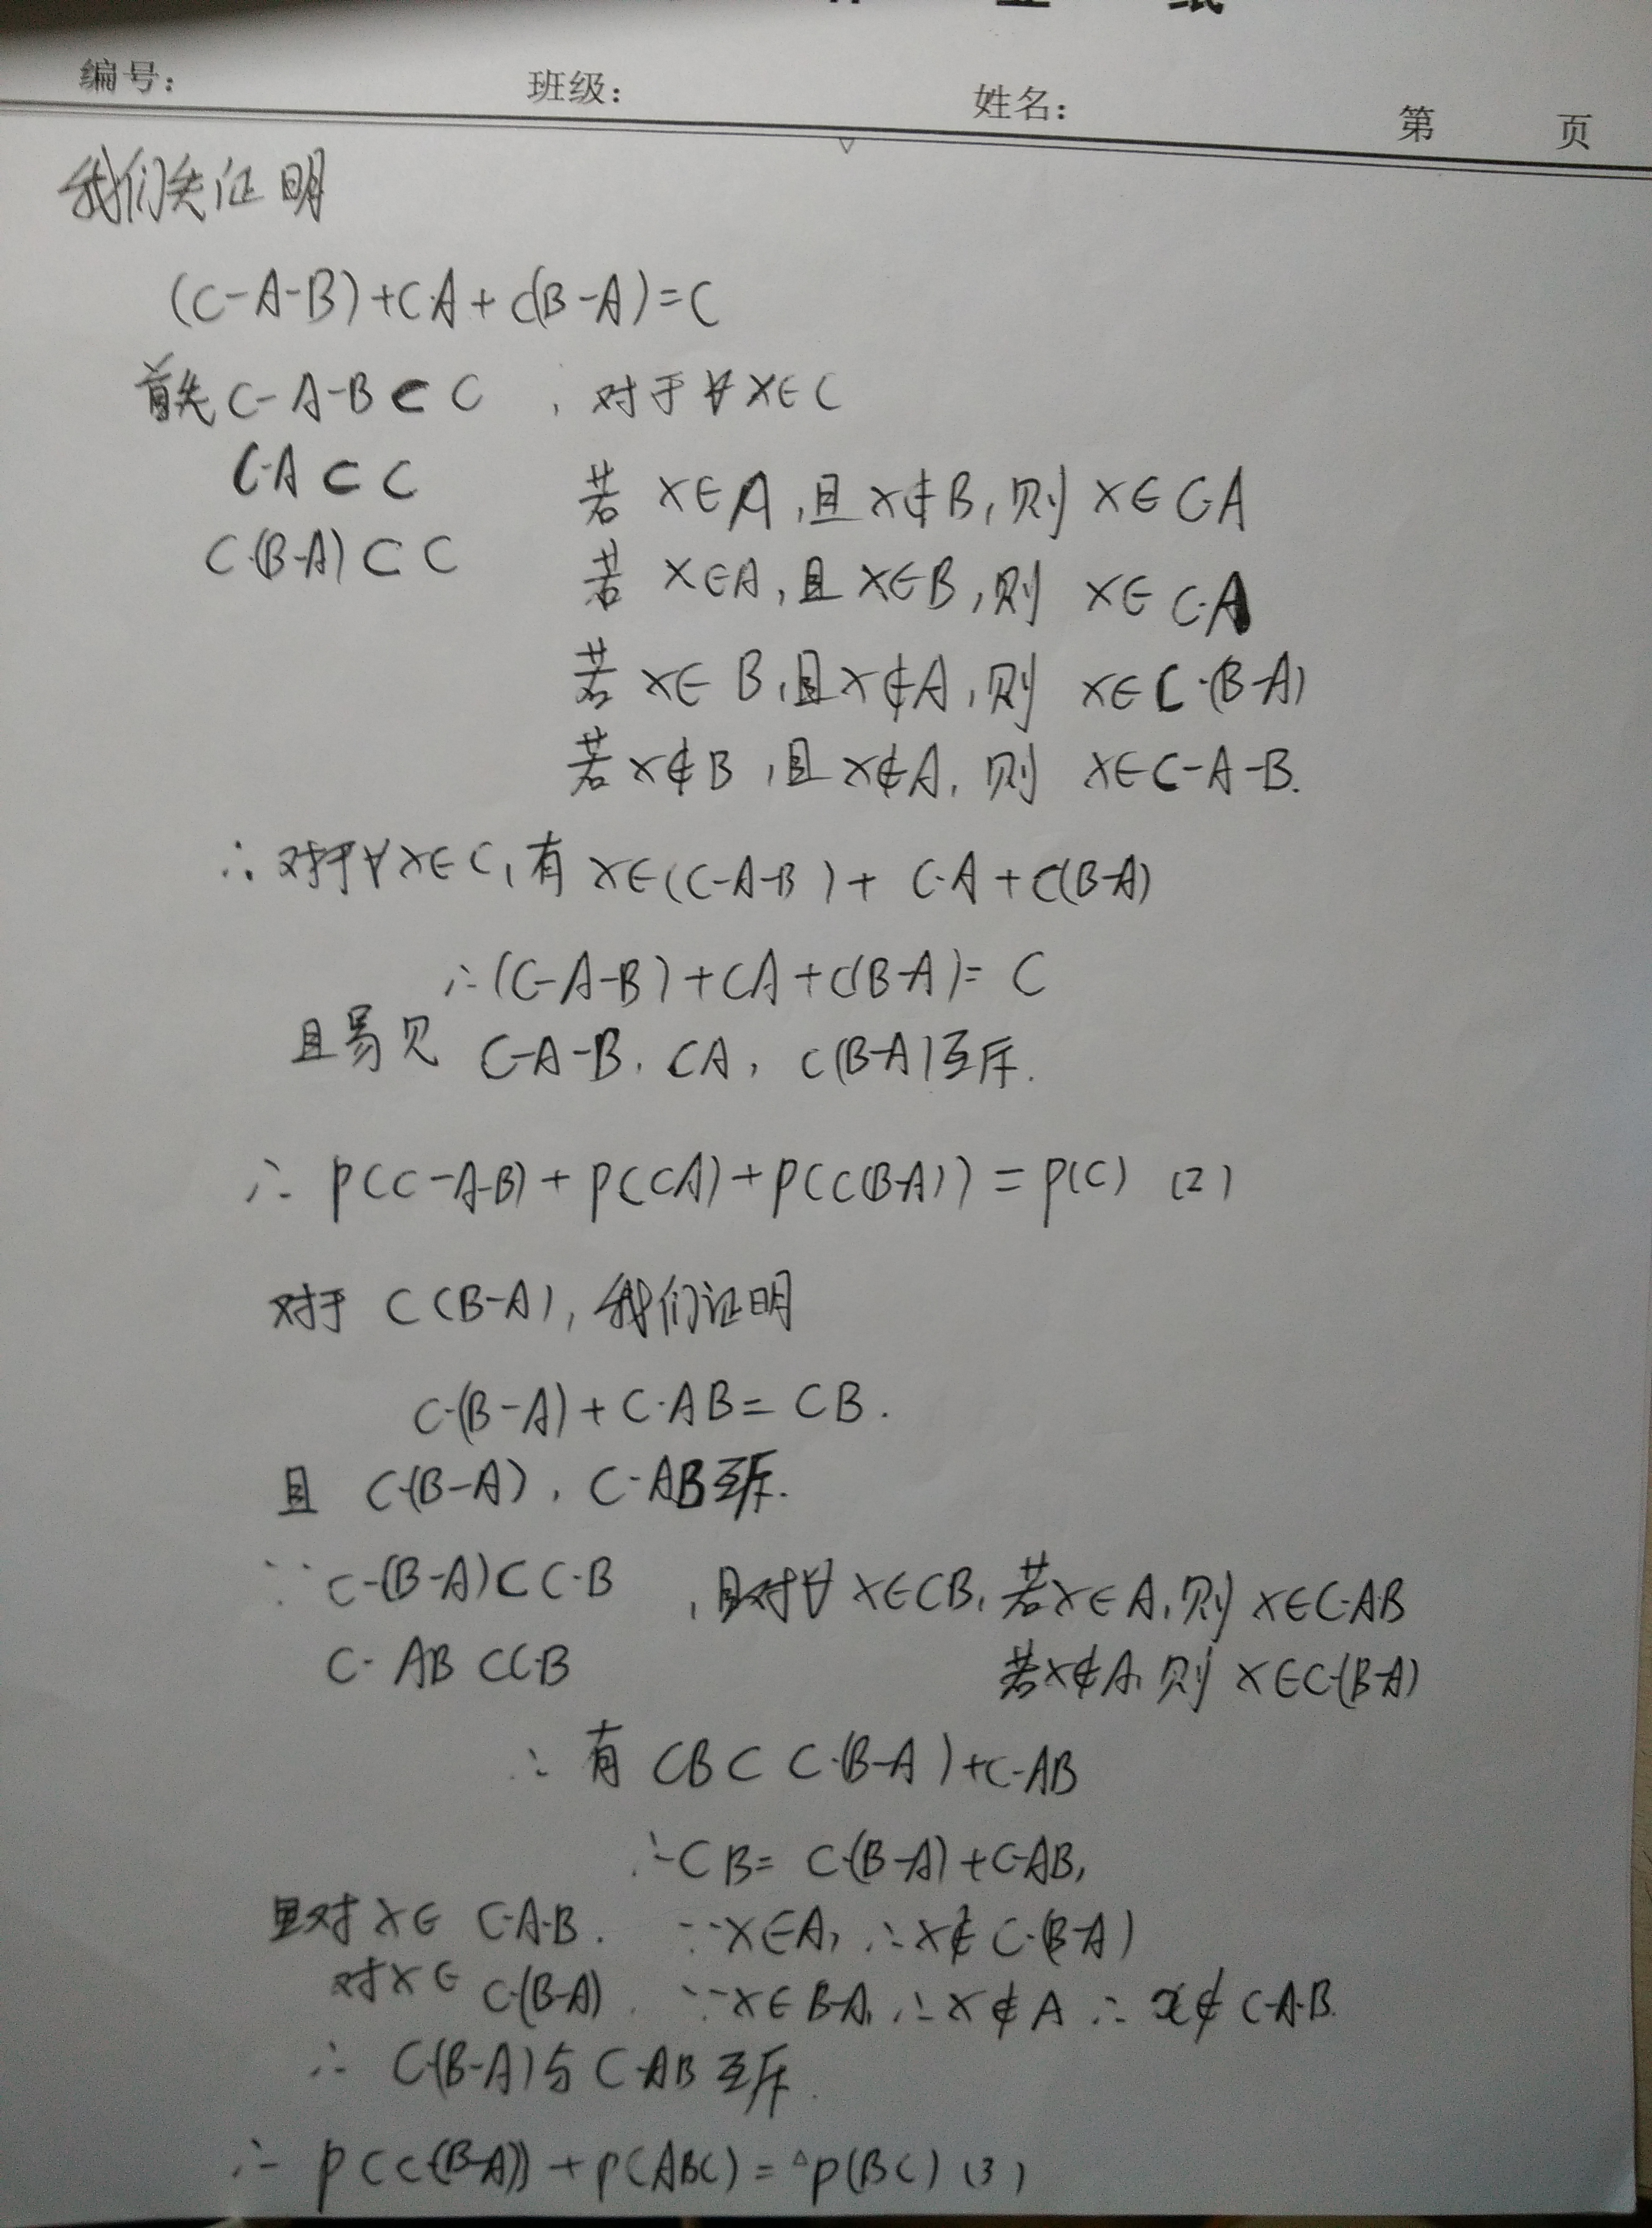 编号： 班级： 姓名： 第 页
我们先证明
(C-A-B)+CA+C(B-A)=C
首先 C-A-B⊂C ，对于∀x∈C
C·A⊂C 若 x∈A,且x∉B,则 x∈C·A
C·(B-A)⊂C 若 x∈A,且x∈B,则 x∈C·A
若 x∈B,且x∉A,则 x∈C·(B-A)
若x∉B,且x∉A,则 x∈C-A-B.
∴对于∀x∈C,有 x∈(C-A-B)+C·A+C(B-A)
∴(C-A-B)+CA+C(B-A)=C
且易见 C-A-B, CA, C(B-A)互斥.
∴ P(C-A-B)+P(CA)+P(C(B-A))=P(C) (2)
对于 C(B-A),我们证明
C·(B-A)+C·AB=CB.
且 C·(B-A), C·AB互斥.
∵ C·(B-A)⊂C·B ,且对∀x∈CB,若x∈A,则 x∈C·AB
C·AB⊂C·B 若x∉A,则 x∈C·(B-A)
∴有 CB⊂C·(B-A)+C·AB
∴CB=C·(B-A)+C·AB,
且对x∈C·A·B. ∵x∈A,∴x∉C·(B-A)
对x∈C·(B-A). ∵x∈B-A,∴x∉A ∴x∉C·A·B.
∴ C·(B-A)与C·AB互斥.
∴ P(C·(B-A))+P(ABC)=P(BC) (3)